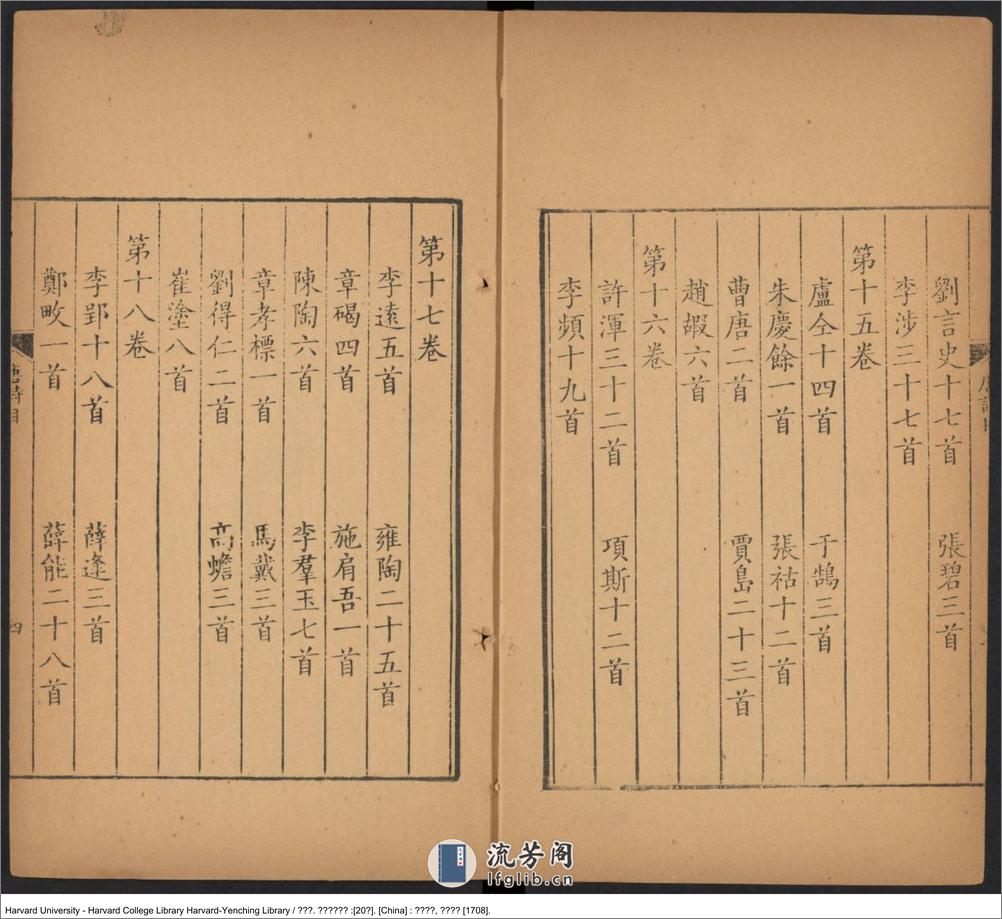 劉言史十七首 張碧三首
李涉三十七首
第十五卷
盧仝十四首 于鵠三首
朱慶餘一首 張祜十二首
曹唐二首 賈島二十三首
趙嘏六首
第十六卷
許渾三十二首 項斯十二首
李頻十九首
第十七卷
李遠五首 雍陶二十五首
章碣四首 施肩吾一首
陳陶六首 李羣玉七首
章孝標一首 馬戴三首
劉得仁二首 高蟾三首
崔塗八首
第十八卷
李郢十八首 薛逢三首
鄭畋一首 薛能二十八首
唐詩目
四
流芳阁
lfglib.cn
Harvard University - Harvard College Library Harvard-Yenching Library / ???. ?????? :[20?]. [China] : ????, ???? [1708].